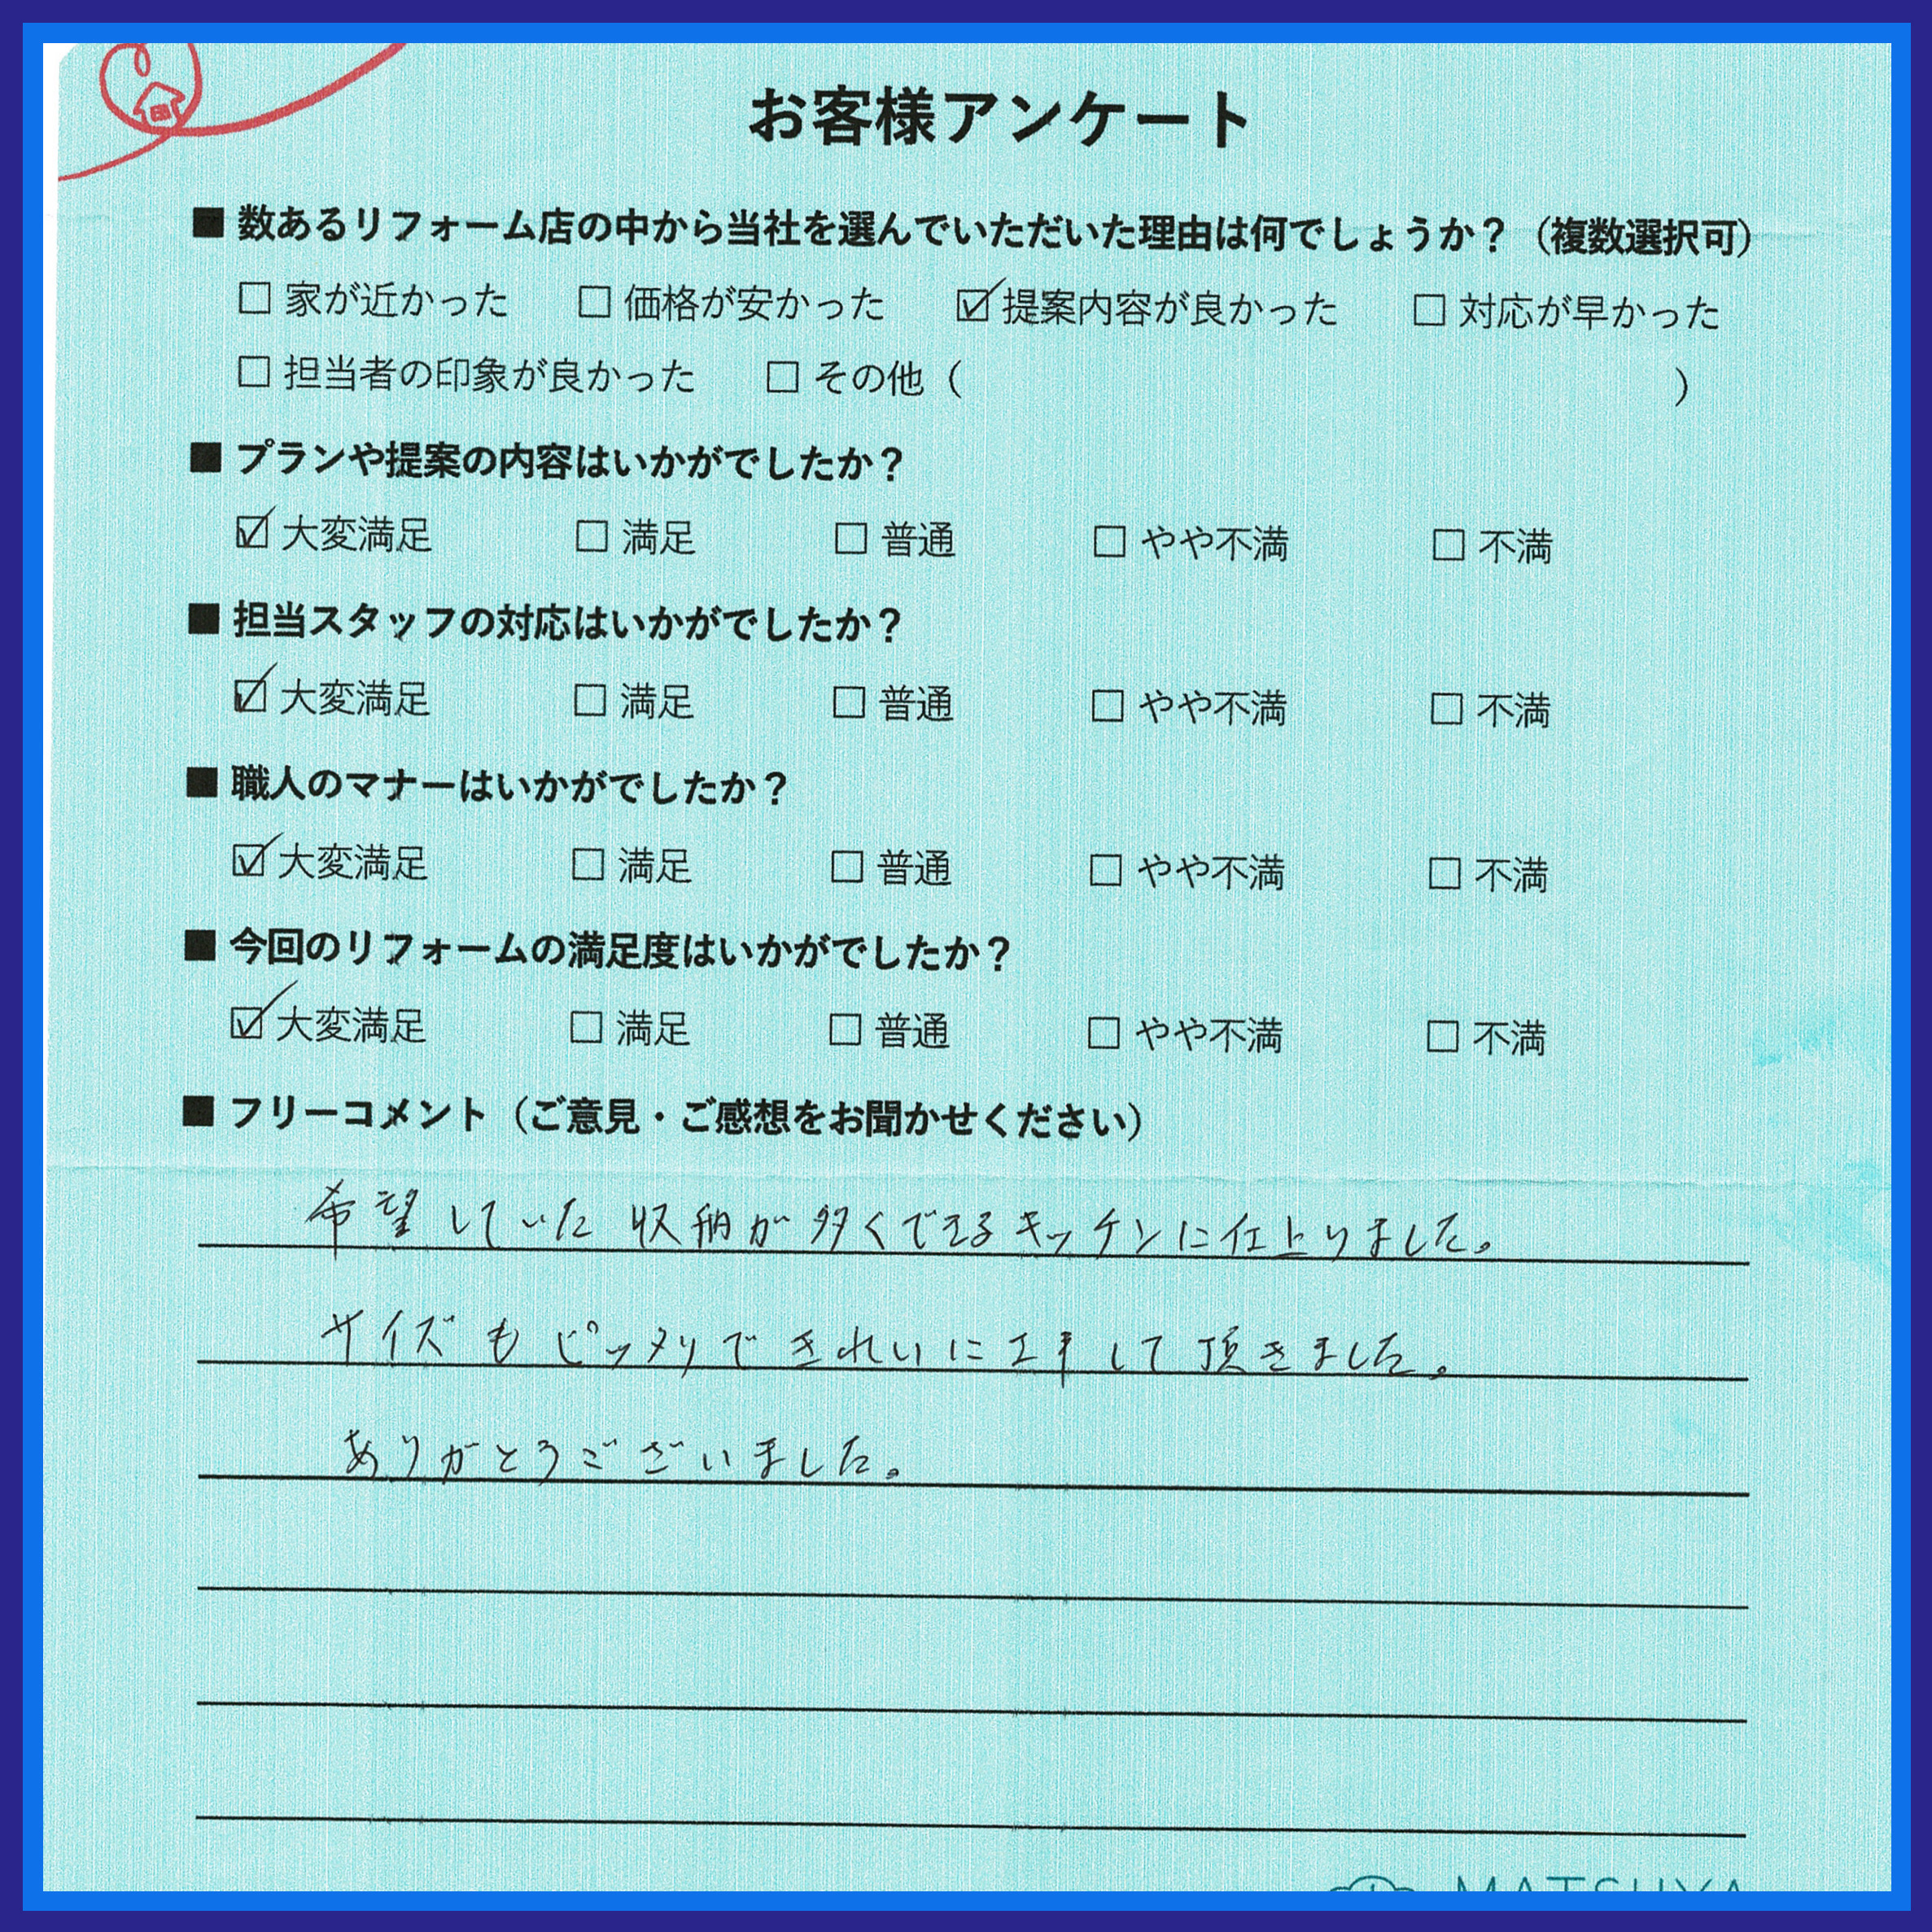 お客様アンケート
■ 数あるリフォーム店の中から当社を選んでいただいた理由は何でしょうか？（複数選択可）
☐ 家が近かった ☐ 価格が安かった ☑ 提案内容が良かった ☐ 対応が早かった
☐ 担当者の印象が良かった ☐ その他（ ）
■ プランや提案の内容はいかがでしたか？
☑ 大変満足 ☐ 満足 ☐ 普通 ☐ やや不満 ☐ 不満
■ 担当スタッフの対応はいかがでしたか？
☑ 大変満足 ☐ 満足 ☐ 普通 ☐ やや不満 ☐ 不満
■ 職人のマナーはいかがでしたか？
☑ 大変満足 ☐ 満足 ☐ 普通 ☐ やや不満 ☐ 不満
■ 今回のリフォームの満足度はいかがでしたか？
☑ 大変満足 ☐ 満足 ☐ 普通 ☐ やや不満 ☐ 不満
■ フリーコメント（ご意見・ご感想をお聞かせください）
希望していた収納が多くできるキッチンに仕上りました。
サイズもピッタリできれいに工事して頂きました。
ありがとうございました。
MATSUYA